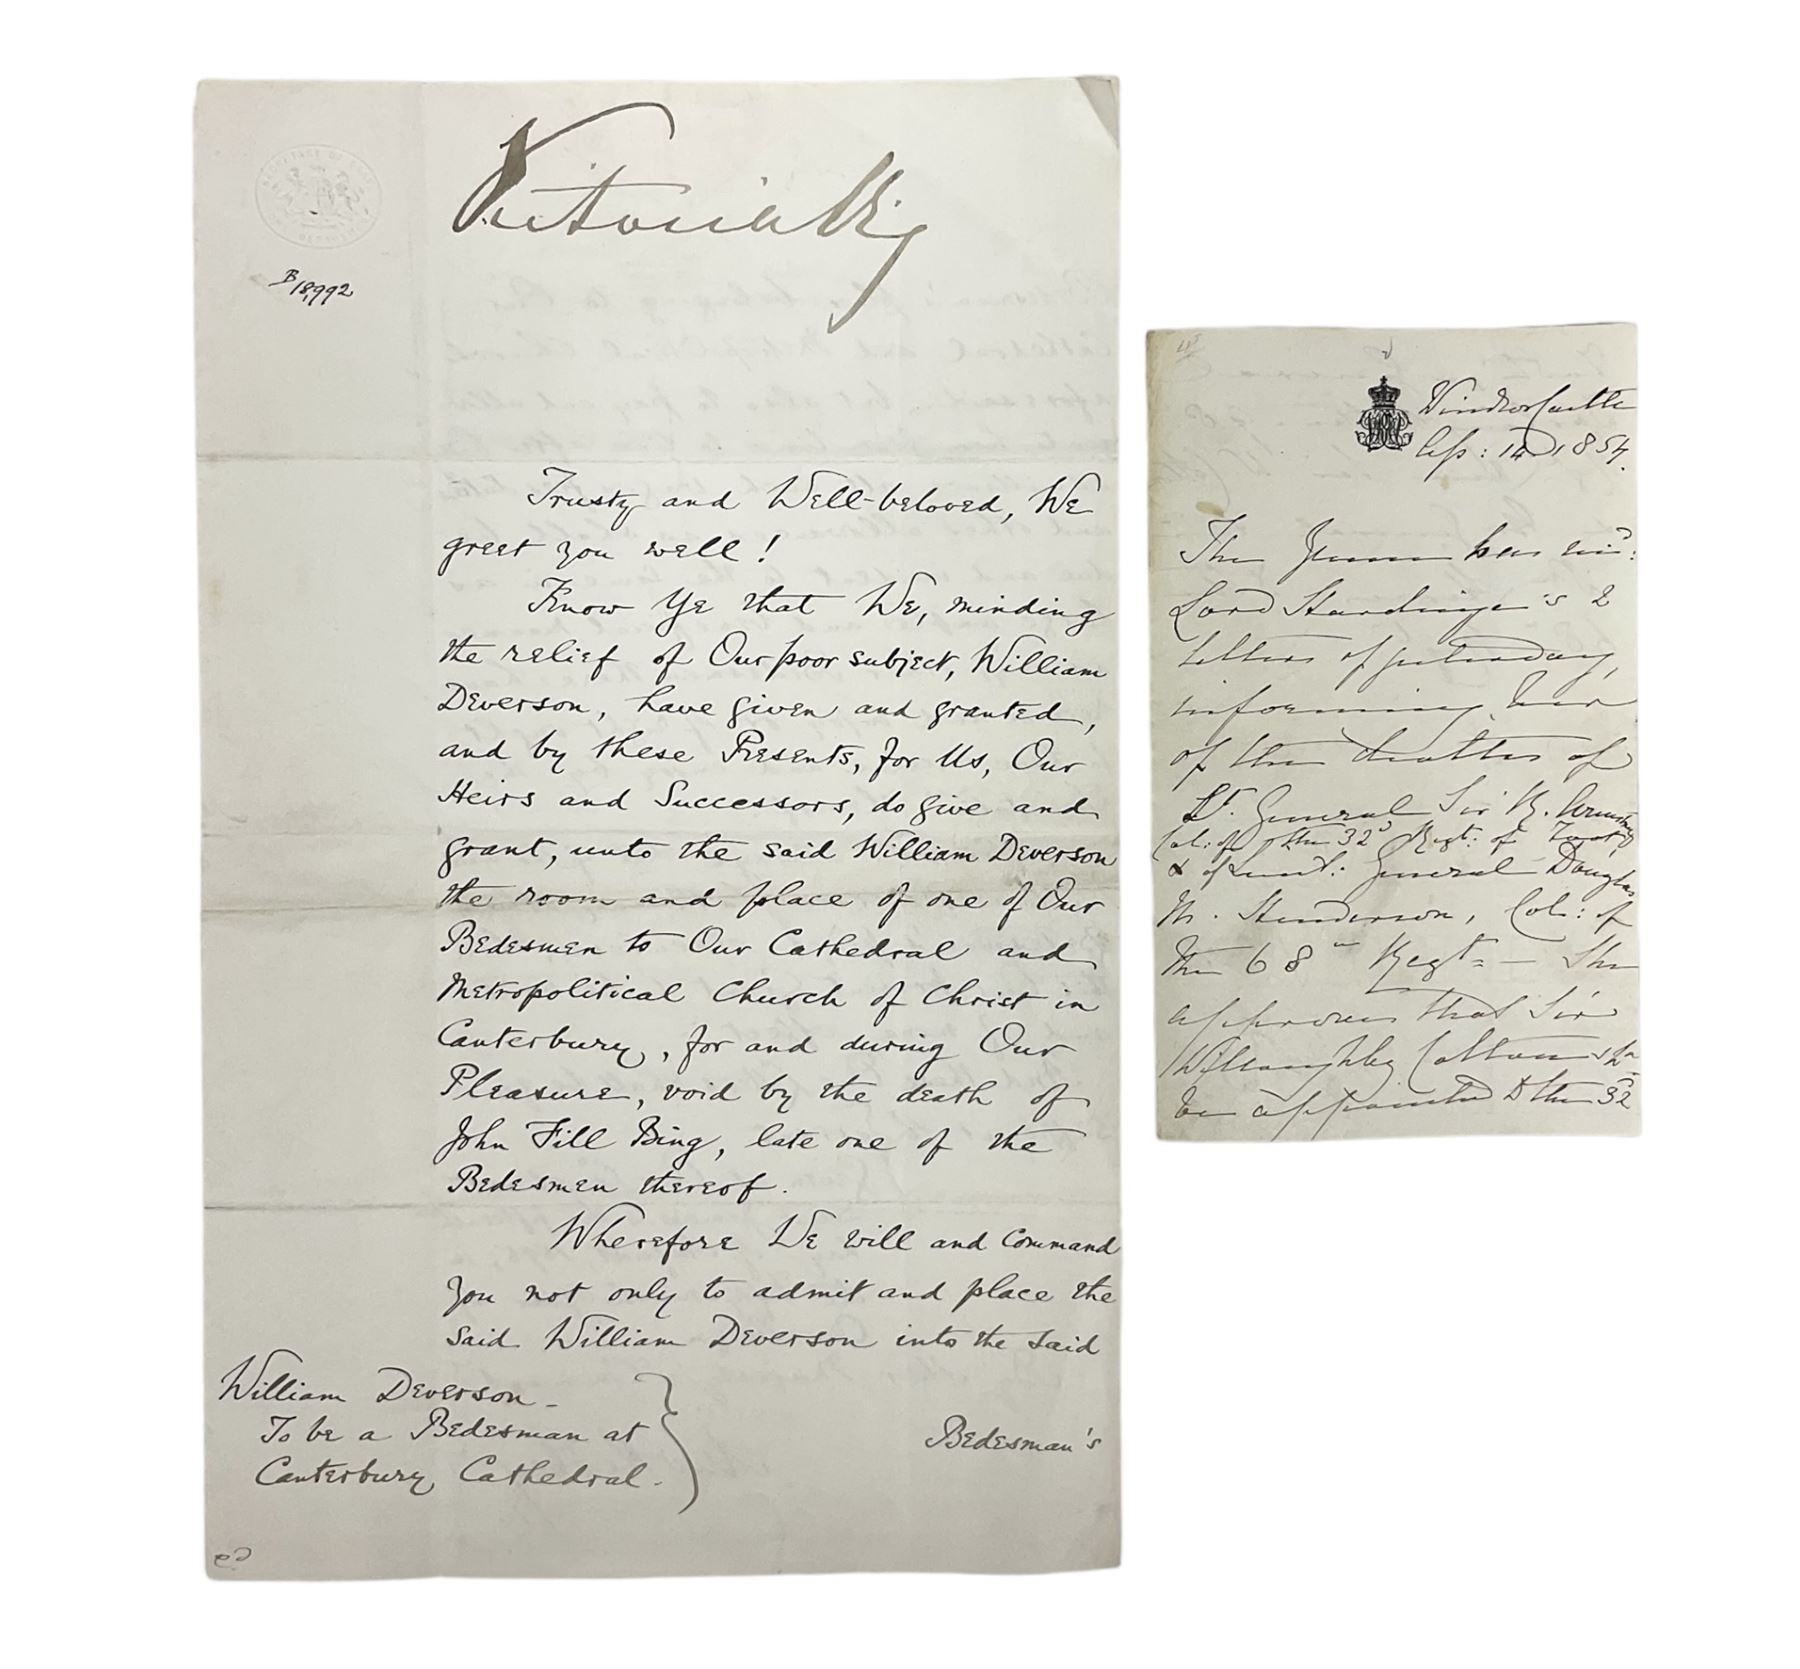 Victoria R
B 18,992
Trusty and Well-beloved, We
greet you well!
Know Ye that We, minding
the relief of Our poor subject, William
Deverson, have given and granted,
and by these Presents, for Us, Our
Heirs and Successors, do give and
grant, unto the said William Deverson
the room and place of one of Our
Bedesmen to Our Cathedral and
Metropolitical Church of Christ in
Canterbury, for and during Our
Pleasure, void by the death of
John Fill Bing, late one of the
Bedesmen thereof.
Wherefore We will and Command
you not only to admit and place the
said William Deverson into the said
Bedesman's
William Deverson -
To be a Bedesman at
Canterbury Cathedral.
Windsor Castle
1854.
The Queen has
Lord Hardinge's 2
letters of yesterday,
informing her
of the deaths of
Lt. General Sir R.
Col: of the 32d Regt: of Foot,
& of Lieut: General Douglas
M. Henderson, Col: of
the 68th Regt - She
approves that Sir
Willoughby Cotton shd
be appointed to the 32d